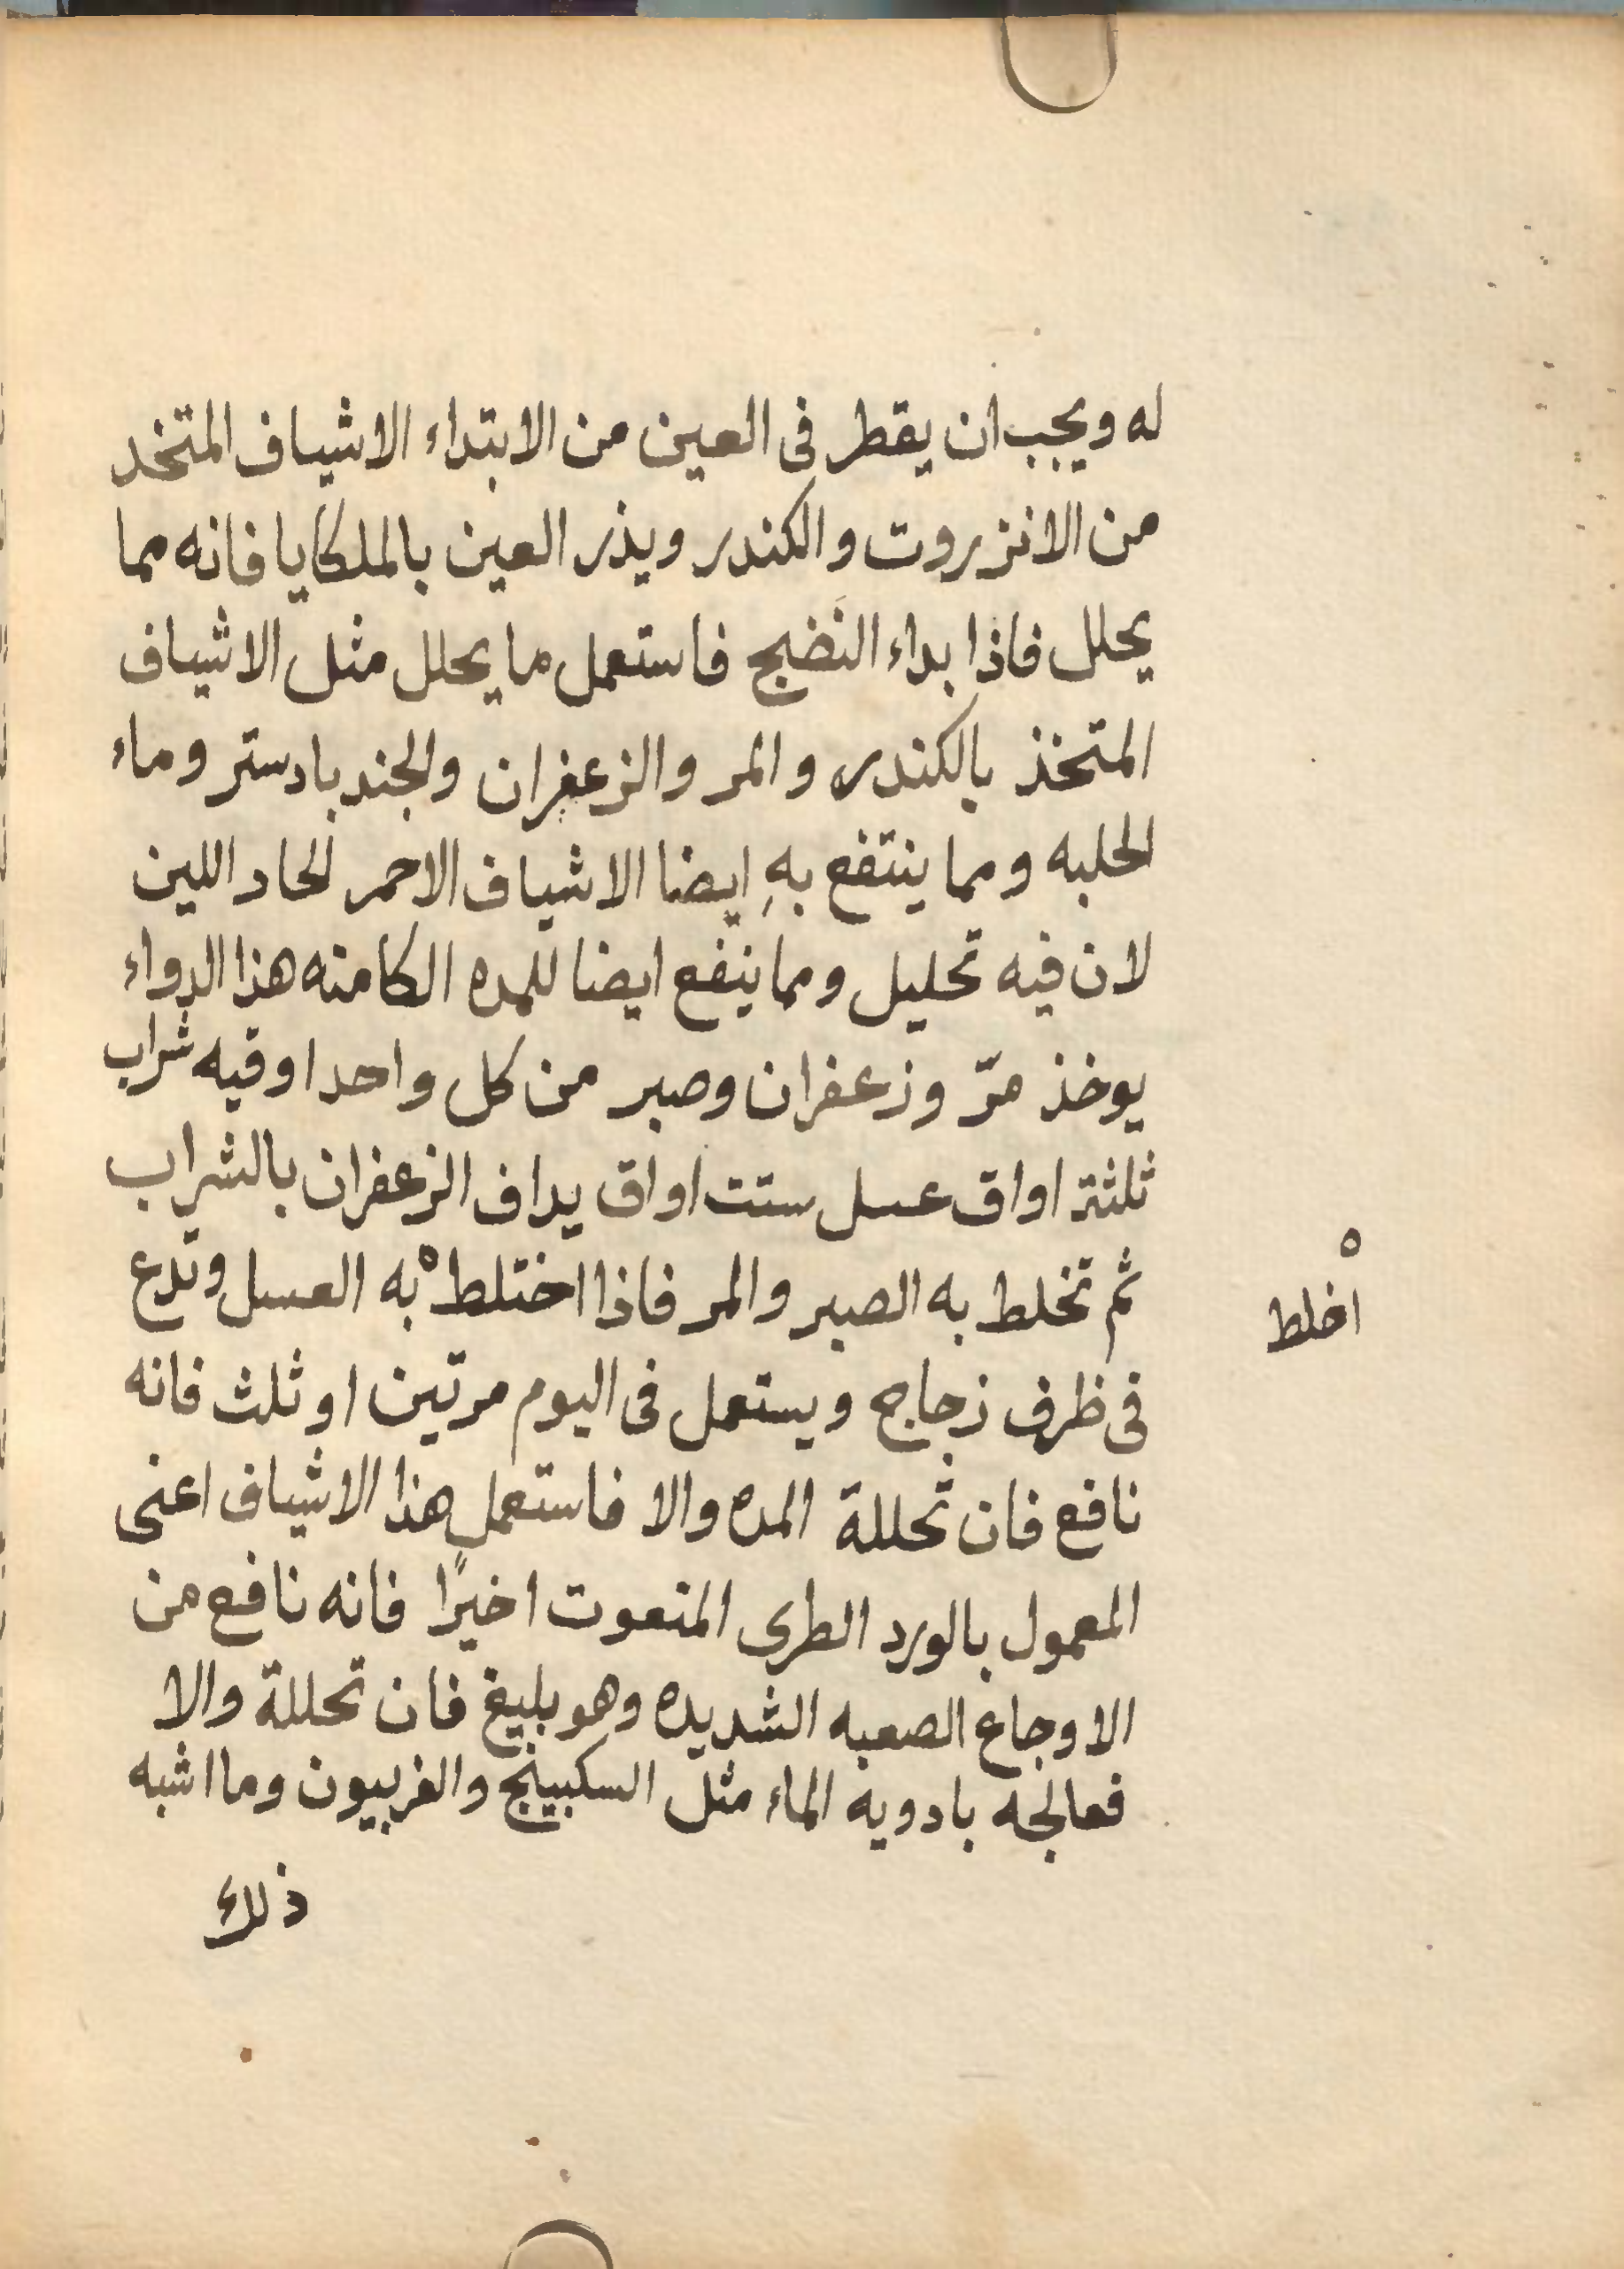 له ويجب ان يقطر فى العين من الابتداء الاشياف المتخد
من الانزروت والكندر ويذر العين بالملكايا فانه مما
يحلل فاذا بداء النَضج فاستعمل ما يحلل مثل الاشياف
المتخذ بالكندر والمر والزعفران والجندبادستر وماء
الحلبه ومما ينتفع بهِ ايضا الاشياف الاحمر الحاد اللين
لان فيه تحليل ومما ينفع ايضا للمده الكامنه هذا الدواء
يوخذ مرّ وزعفران وصبر من كل واحد اوقيه شراب
ثلثة اواق عسل ستت اواق يداف الزعفران بالشراب
ثم تخلط به الصبر والمر فاذا اختلط ه به العسل وتدع
ه
اخلط
فى ظرف زجاج ويستعمل فى اليوم مرتين او ثلث فانه
نافع فان تحللة المده والا فاستعمل هذا الاشياف اعنى
المعمول بالورد الطرى المنعوت اخيرًا فانه نافع من
الاوجاع الصعبه الشديده وهو بليغ فان تحللة والا
فعالجه بادويه الماء مثل السكبينج والفربيون وما اشبه
ذلك